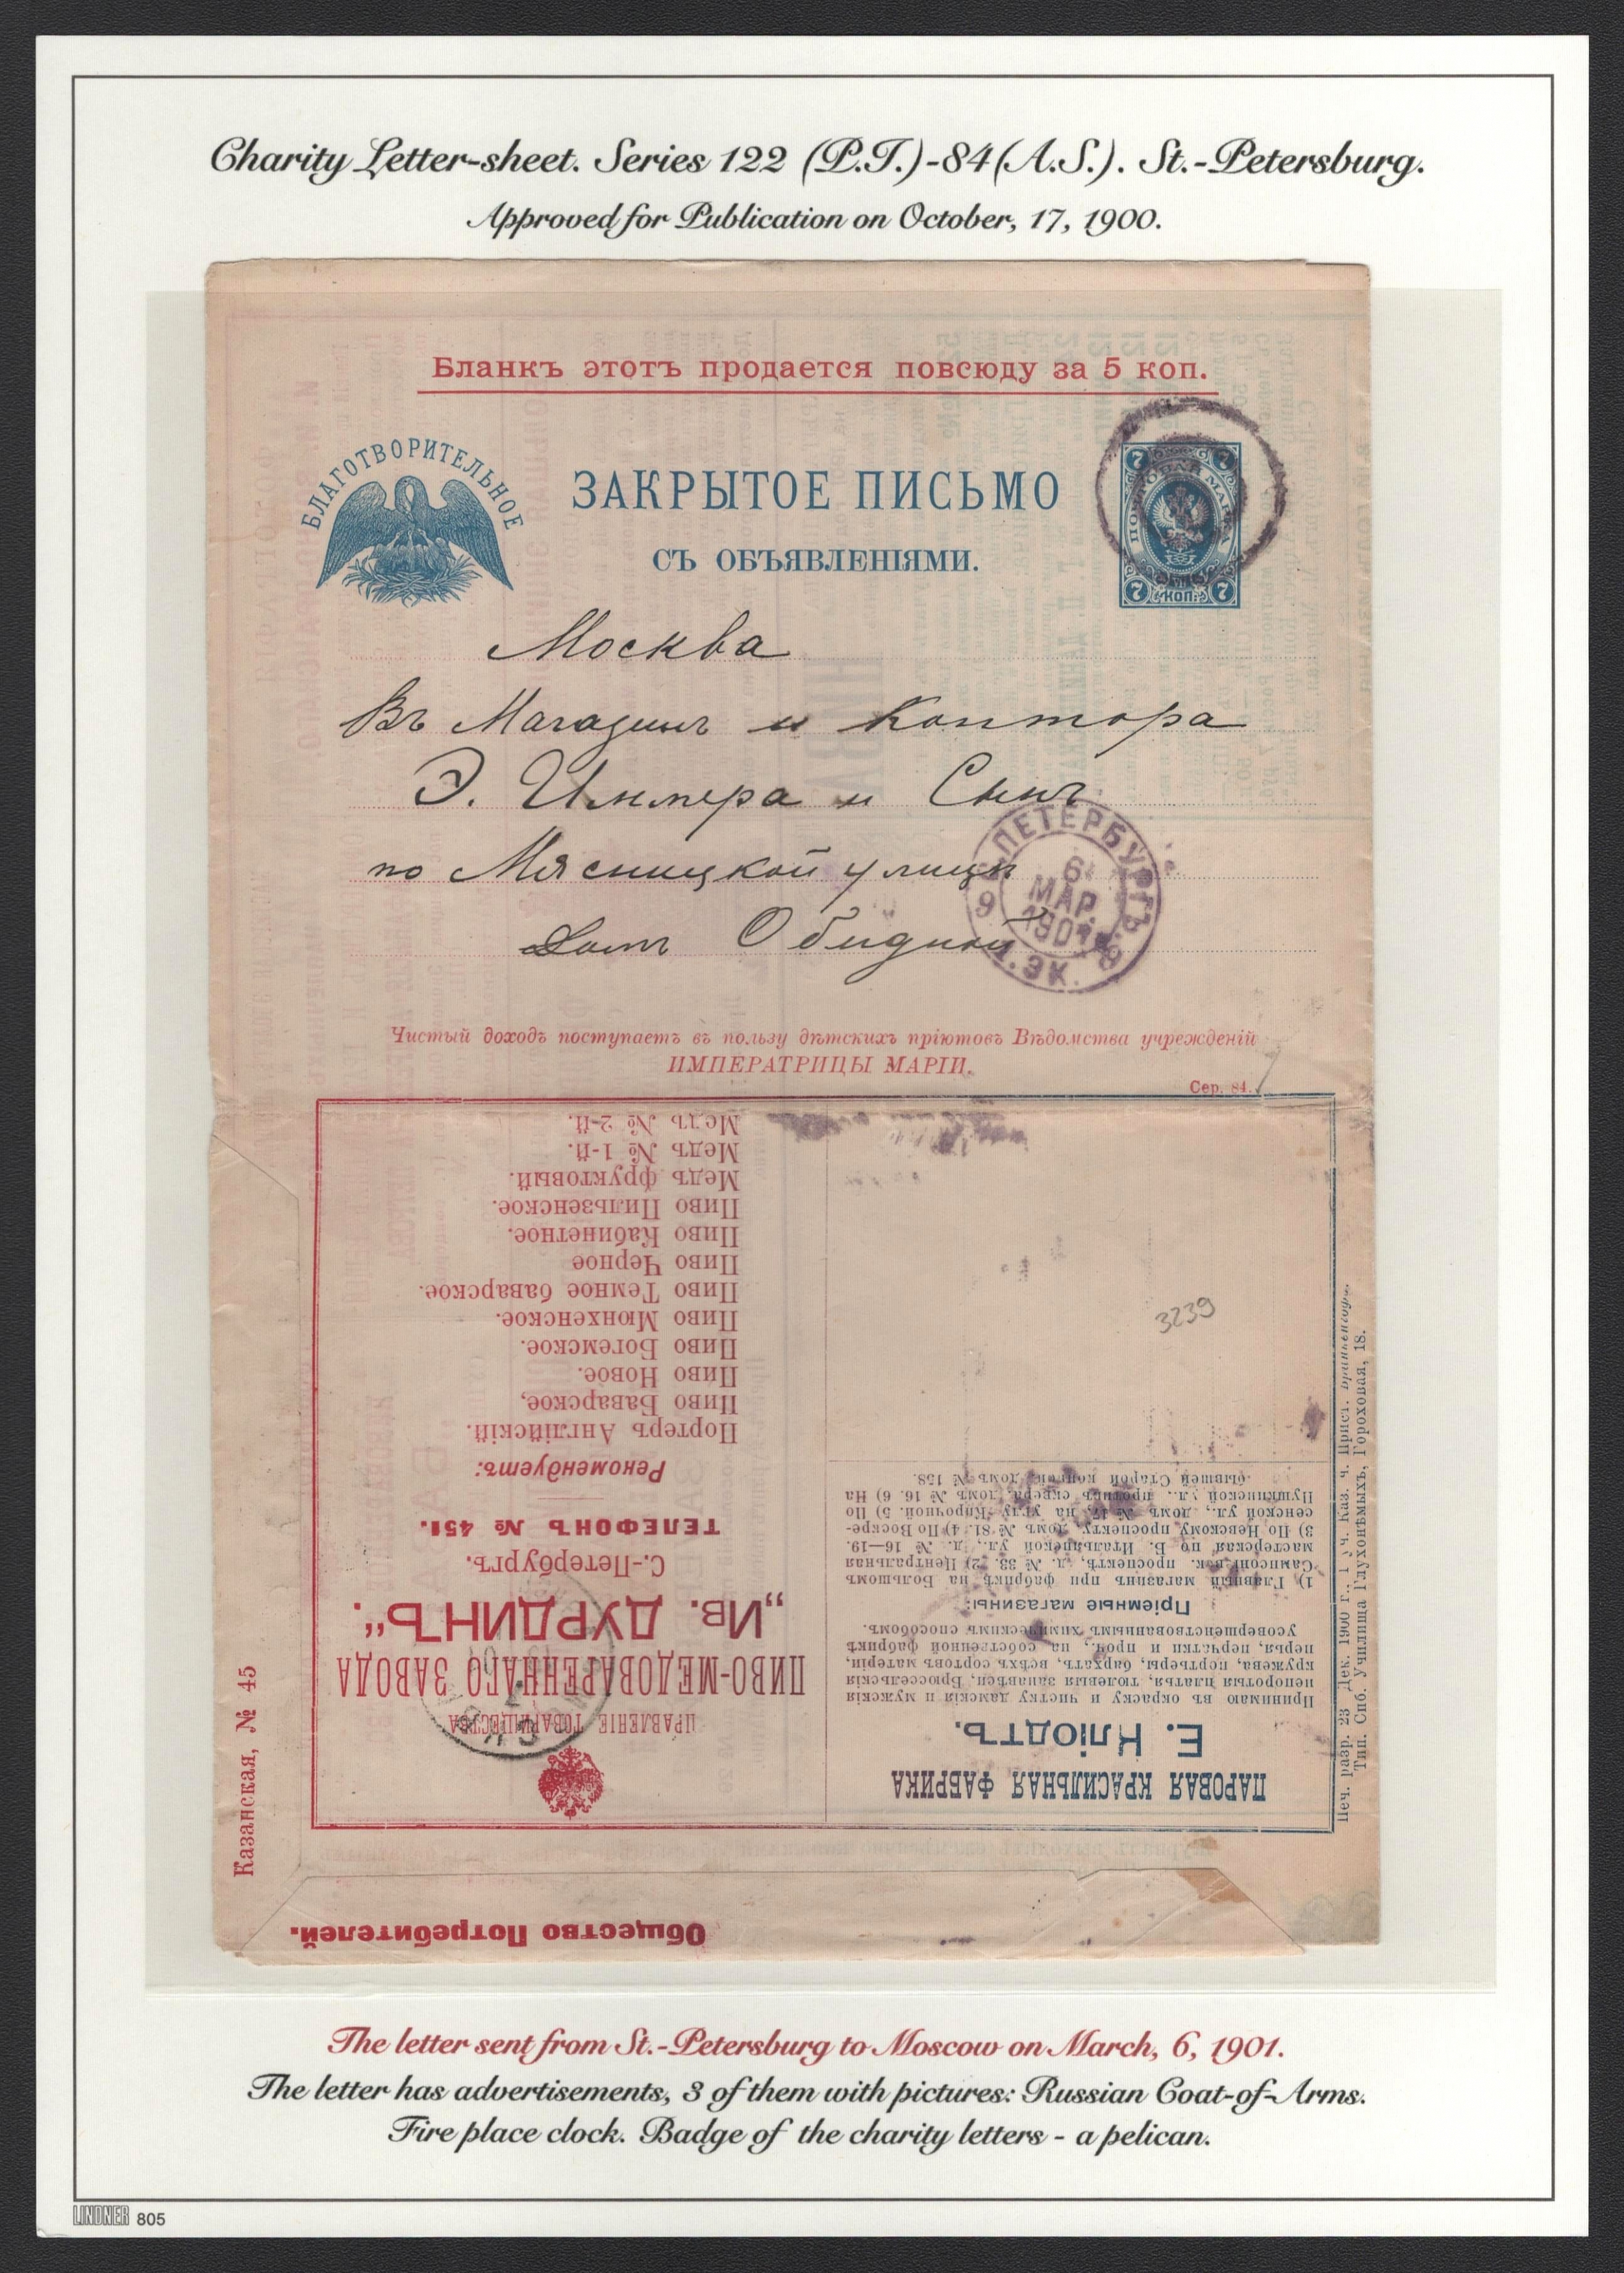 Charity Letter-sheet. Series 122 (P.T.)-84(A.S.). St.-Petersburg.
Approved for Publication on October, 17, 1900.
Бланкъ этотъ продается повсюду за 5 коп.
БЛАГОТВОРИТЕЛЬНОЕ
ЗАКРЫТОЕ ПИСЬМО
СЪ ОБЪЯВЛЕНІЯМИ.
7 7
ПОЧТОВАЯ МАРКА
7 КОП. 7
Москва
Въ Магазинъ и Контора
Э. Циммера и Сынъ
по Мясницкой улицѣ
Домъ Обидной
ПЕТЕРБУРГЪ
6
МАР.
1901
9
ЭК.
Чистый доходъ поступаетъ въ пользу дѣтскихъ пріютовъ Вѣдомства учрежденій
ИМПЕРАТРИЦЫ МАРІИ.
Сер. 84.
3239
Общество Потребителей.
ПРАВЛЕНІЕ ТОВАРИЩЕСТВА
ПИВО-МЕДОВАРЕННАГО ЗАВОДА
„Ив. ДУРДИНЪ“.
С.-Петербургъ.
ТЕЛЕФОНЪ № 451.
Рекомендуетъ:
Портеръ Англійскій.
Пиво Баварское,
Пиво Новое.
Пиво Богемское.
Пиво Мюнхенское.
Пиво Темное баварское.
Пиво Черное
Пиво Кабинетное.
Пиво Пильзенское.
Медъ фруктовый.
Медъ № 1-й.
Медъ № 2-й.
ПАРОВАЯ КРАСИЛЬНАЯ ФАБРИКА
Е. Кліодтъ.
Принимаю въ окраску и чистку дамскія и мужскія
непоротыя платья, тюлевыя занавѣси, Брюссельскія
кружева, портьеры, бархатъ, всѣхъ сортовъ матеріи,
перья, перчатки и проч., на собственной фабрикѣ
усовершенствованнымъ химическимъ способомъ.
Пріемные магазины:
1) Главный магазинъ при фабрикѣ на Большомъ
Сампсоніевск. проспектѣ, д. № 33. 2) Центральная
мастерская по Б. Итальянской ул., д. № 16—19.
3) По Невскому проспекту, домъ № 81. 4) По Воскре-
сенской ул., домъ № 17, на углу Кирочной. 5) По
Пушкинской ул., противъ сквера, домъ № 16. 6) На
бывшей Старой конкѣ, домъ № 158.
Казанская, № 45
Печ. разр. 23 Дек. 1900 г., 1 уч. Каз. ч. Прист.
Тип. Спб. Училища Глухонѣмыхъ, Гороховая, 18.
The letter sent from St.-Petersburg to Moscow on March, 6, 1901.
The letter has advertisements, 3 of them with pictures: Russian Coat-of-Arms.
Fire place clock. Badge of the charity letters - a pelican.
LINDNER 805